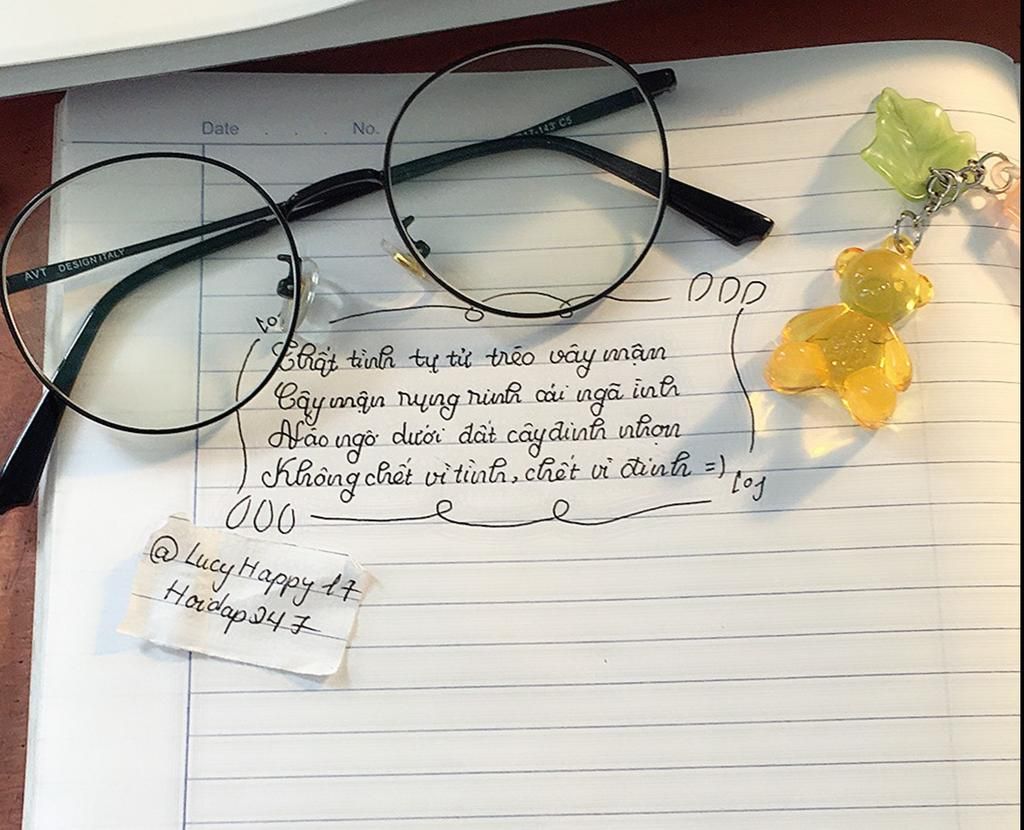 Date . . . No.
17-143 C5
AVT DESIGN ITALY
Thất tình tự tử trẻo cây mận
Cây mận rung rinh cái ngã ình
Nào ngờ dưới đất cây đinh nhọn
Không chết vì tình, chết vì đinh =)
@LucyHappy17
Hoidap247